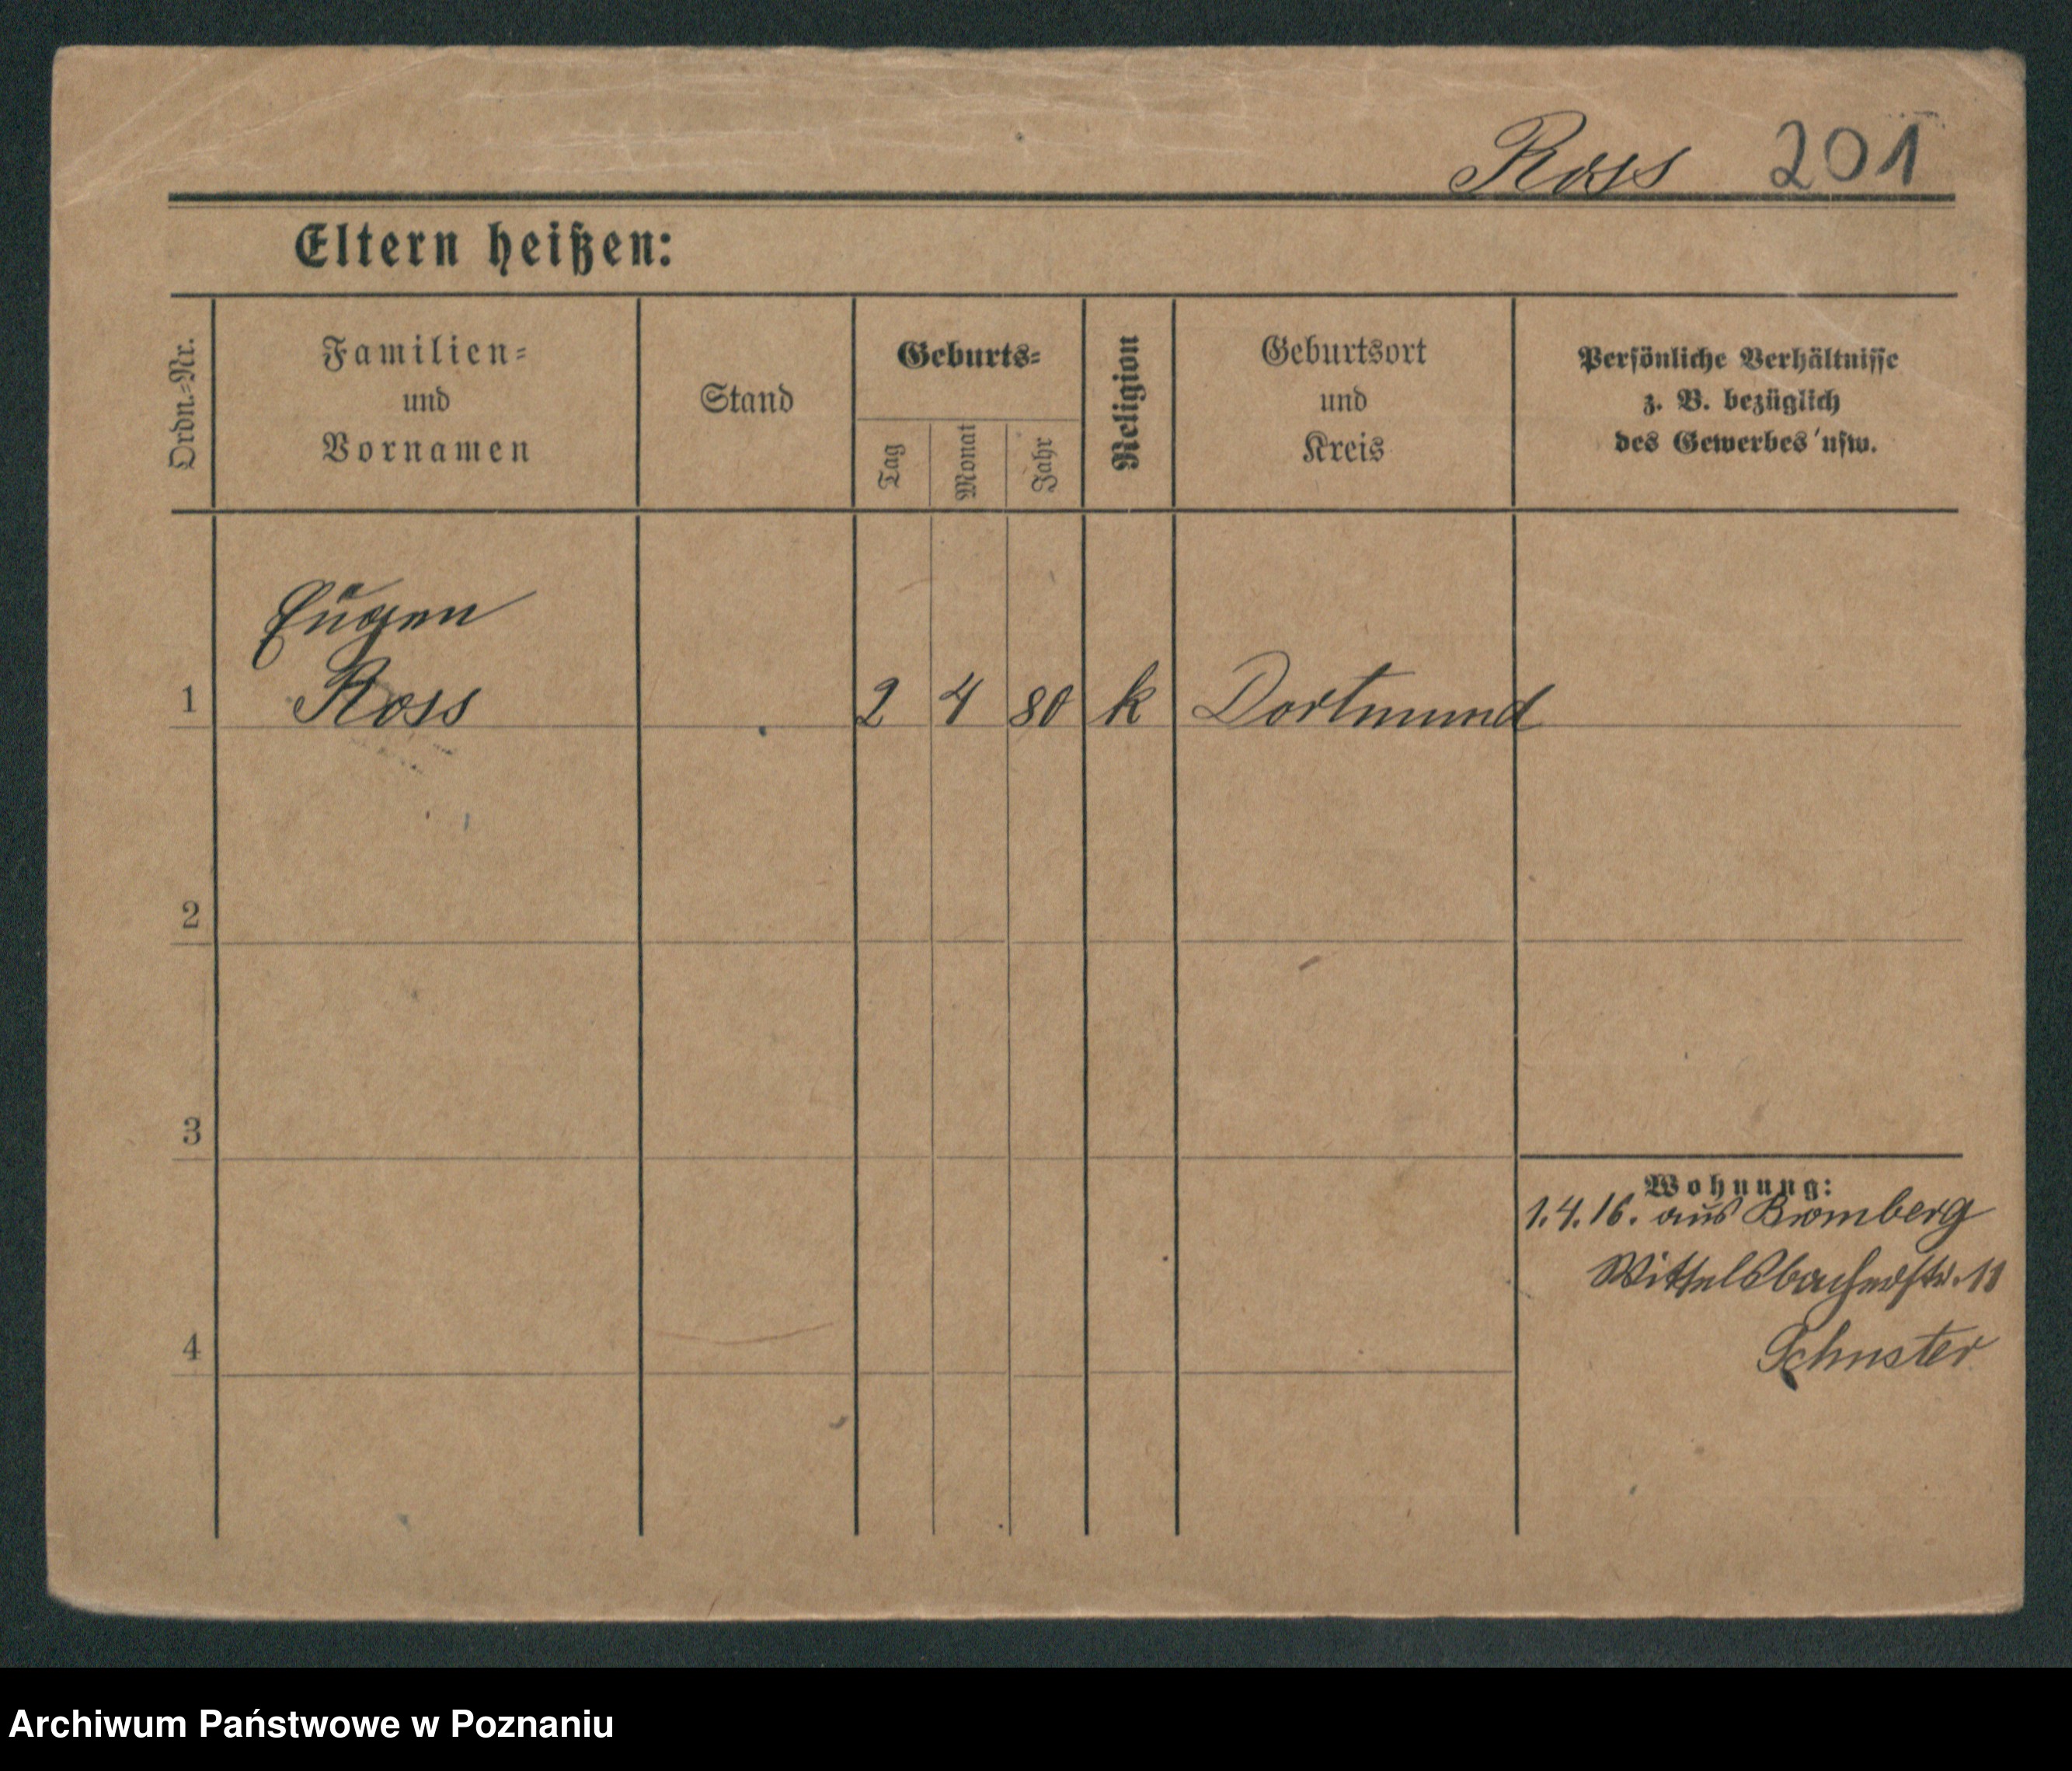 Ross 201
Eltern heißen:
Ordn.-Nr.
Familien-
und
Vornamen
Stand
Geburts-
Tag
Monat
Jahr
Religion
Geburtsort
und
Kreis
Persönliche Verhältnisse
z. B. bezüglich
des Gewerbes usw.
Eugen
1 Ross 2 4 80 k Dortmund
2
3
Wohnung:
1.4.16. aus Bromberg
Wittelsbacherstr. 11
Schuster
4
Archiwum Państwowe w Poznaniu